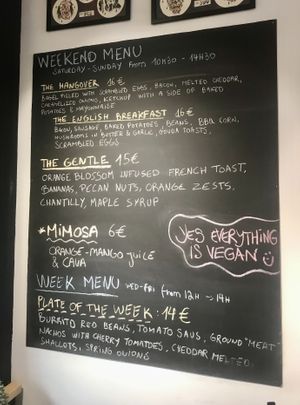 WEEKEND MENU
SATURDAY - SUNDAY FROM 10H30 - 14H30
THE HANGOVER 16€
BAGEL FILLED WITH SCRAMBLED EGGS, BACON, MELTED CHEDDAR,
CARAMELIZED ONIONS, KETCHUP WITH A SIDE OF BAKED
POTATOES & MAYONNAISE
THE ENGLISH BREAKFAST 16€
BACON, SAUSAGE, BAKED POTATOES, BEANS, BBQ CORN,
MUSHROOMS IN BUTTER & GARLIC, GOUDA TOASTS,
SCRAMBLED EGGS
THE GENTLE 15€
ORANGE BLOSSOM INFUSED FRENCH TOAST,
BANANAS, PECAN NUTS, ORANGE ZESTS,
CHANTILLY, MAPLE SYRUP
*MIMOSA 6€
ORANGE-MANGO JUICE
& CAVA
YES EVERYTHING
IS VEGAN
WEEK MENU WED-FRI from 12H → 14H
PLATE OF THE WEEK: 14€
BURRITO RED BEANS, TOMATO SAUS, GROUND "MEAT"
NACHOS WITH CHERRY TOMATOES, CHEDDAR MELTED,
SHALLOTS, SPRING ONIONS